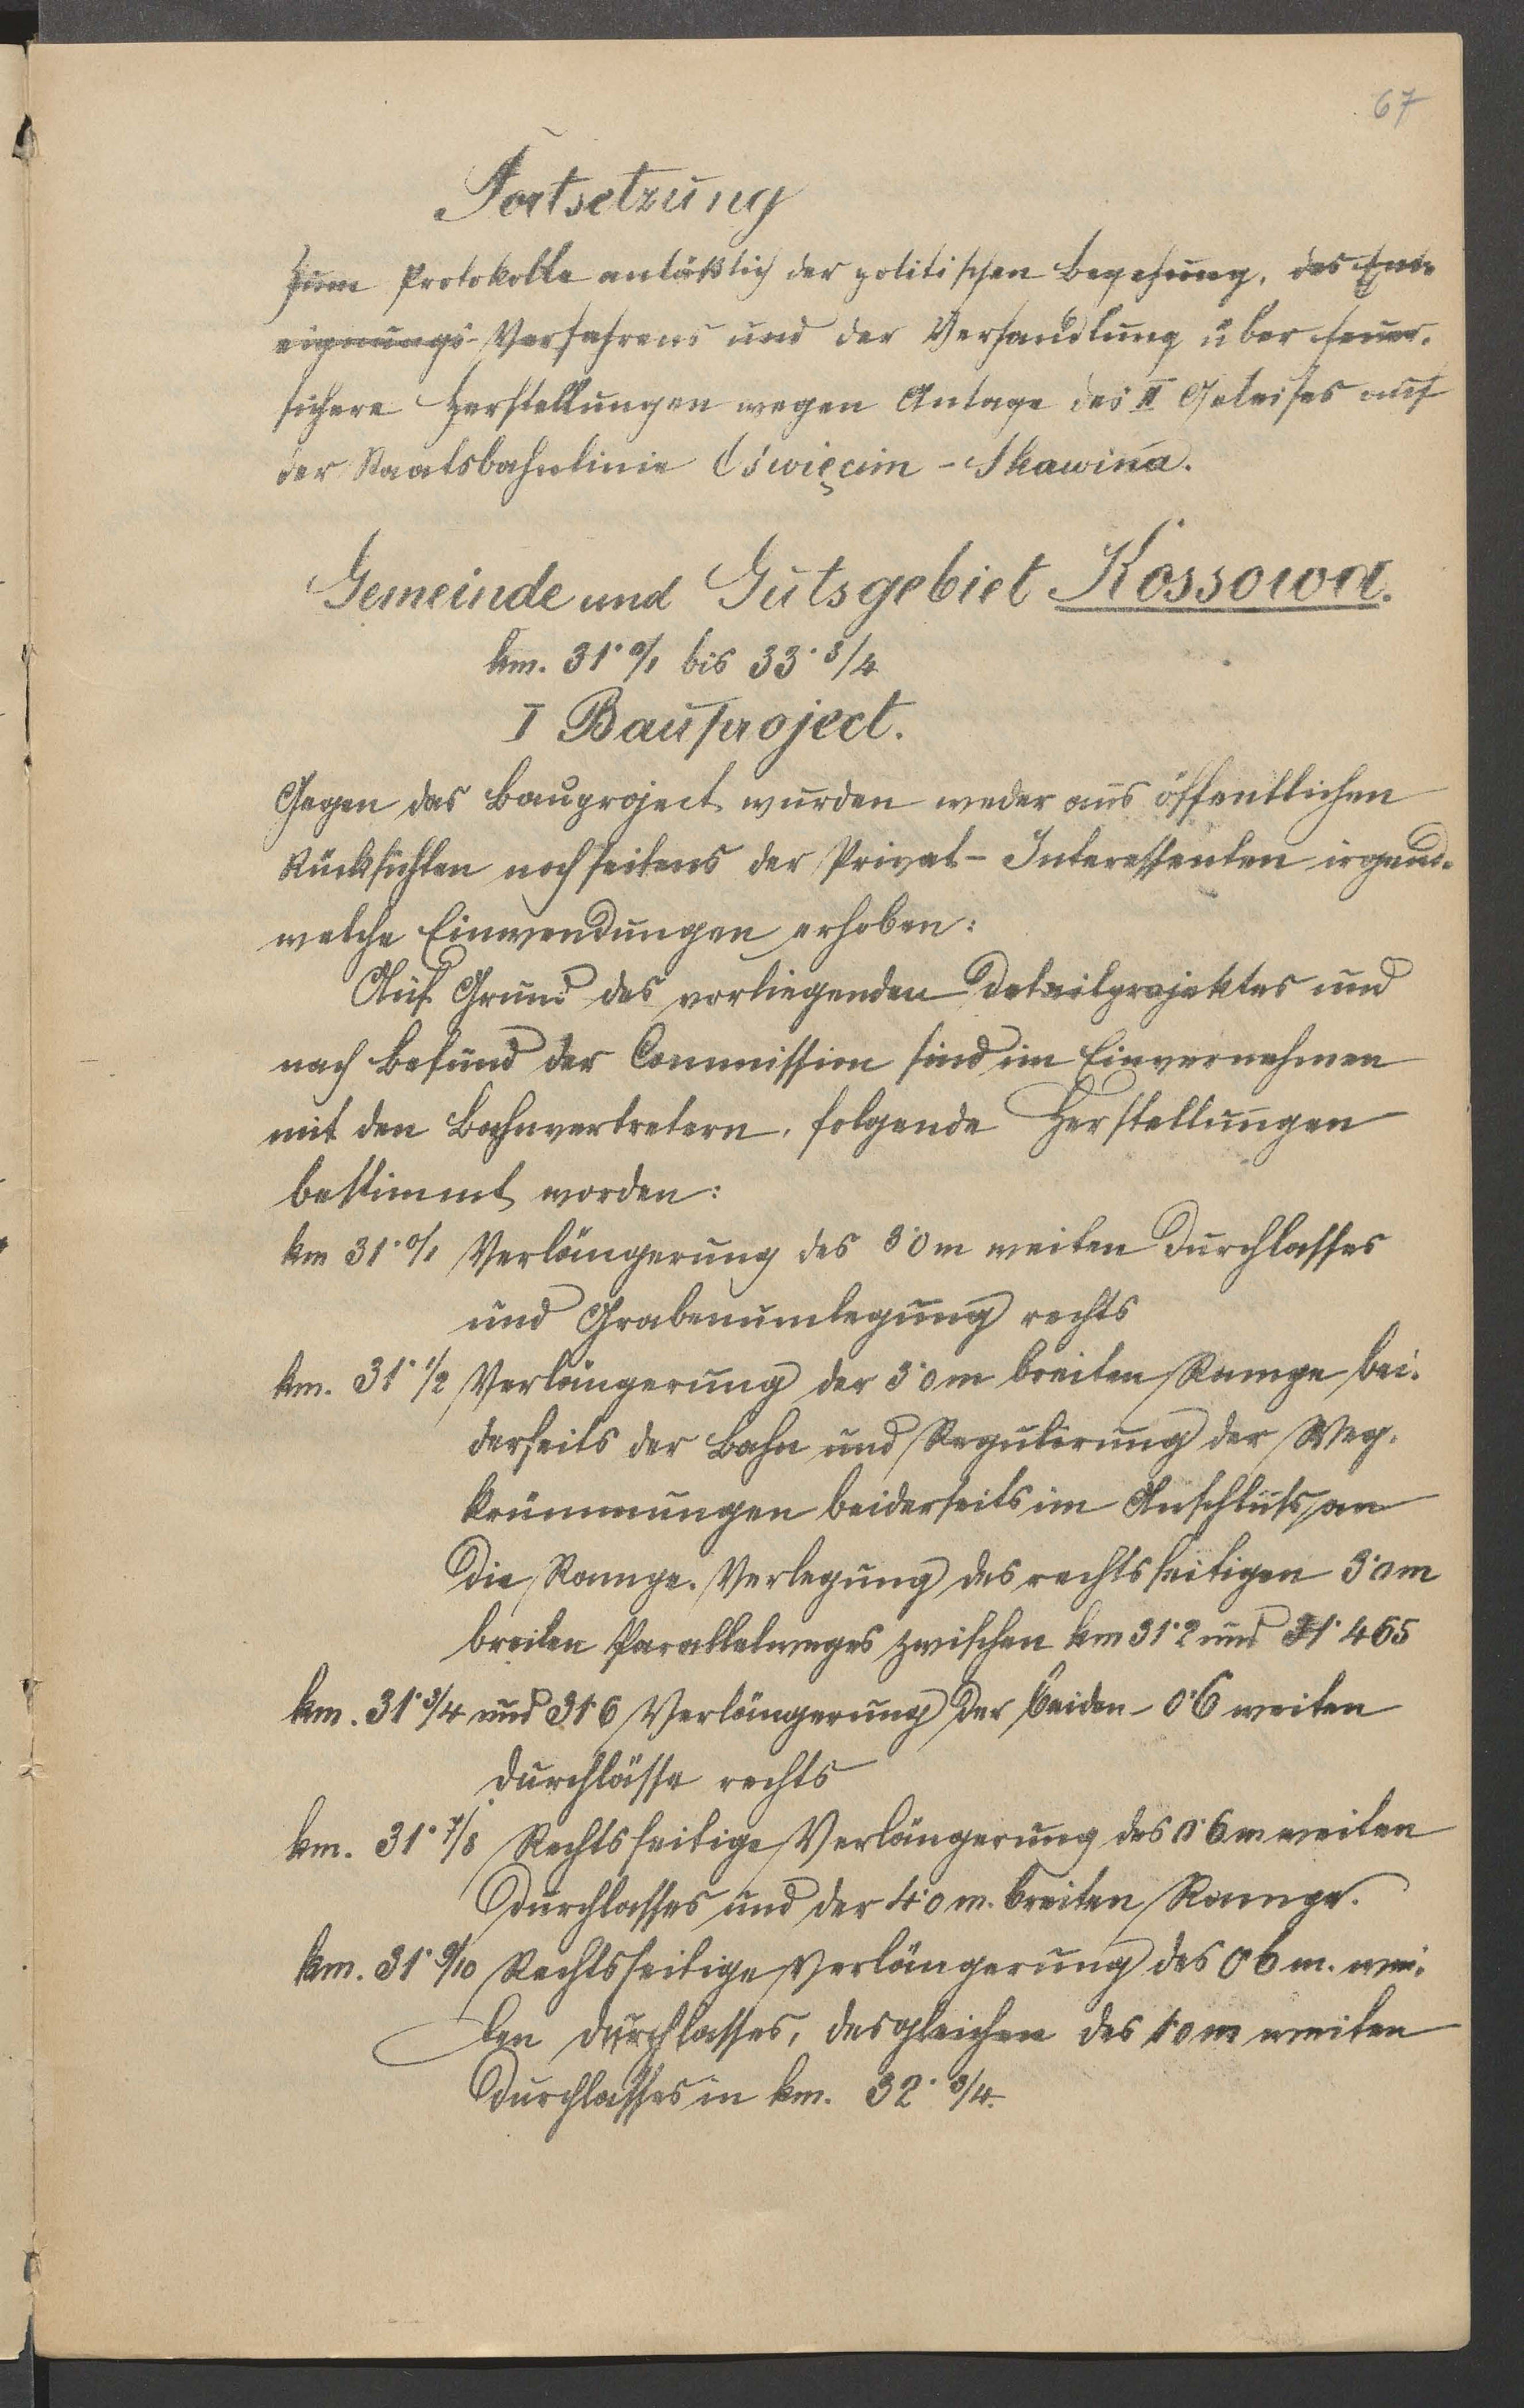 67
Fortsetzung
zum Protokolle anläßlich der politischen Begehung, des Ent-
eignungs-Verfahrens und der Verhandlung über feuer-
sichere Herstellungen wegen Anlage des II Geleises auf
der Staatsbahnlinie Oświęcim - Skawina.
Gemeinde und Gutsgebiet Kossowa.
km. 31·0/1 bis 33·3/4
I Bauproject.
Gegen das Bauproject wurden weder aus öffentlichen
Rücksichten noch seitens der Privat-Interessenten irgend-
welche Einwendungen erhoben:
Auf Grund des vorliegenden Detailprojektes und
nach Befund der Commission sind im Einvernehmen
mit den Bahnvertretern, folgende Herstellungen
bestimmt worden:
km 31·0/1 Verlängerung des 3·0 m weiten Durchlasses
und Grabenumlegung rechts
km. 31·1/2 Verlängerung der 3·0 m breiten Rampe bei-
derseits der Bahn und Regulierung der Weg-
krümmungen beiderseits im Anschluß an
die Rampe. Verlegung des rechtsseitigen 3·0 m
breiten Parallelweges zwischen km 31·2 und 31·465
km. 31·3/4 und 31·6 Verlängerung der beiden 0·6 weiten
Durchlässe rechts
km. 31·7/8 Rechtsseitige Verlängerung des 0·6 m weiten
Durchlasses und der 4·0 m. breiten Rampe.
km. 31·9/10 Rechtsseitige Verlängerung des 0·6 m. wei-
ten Durchlasses, desgleichen des 1·0 m weiten
Durchlasses in km. 32·3/4.